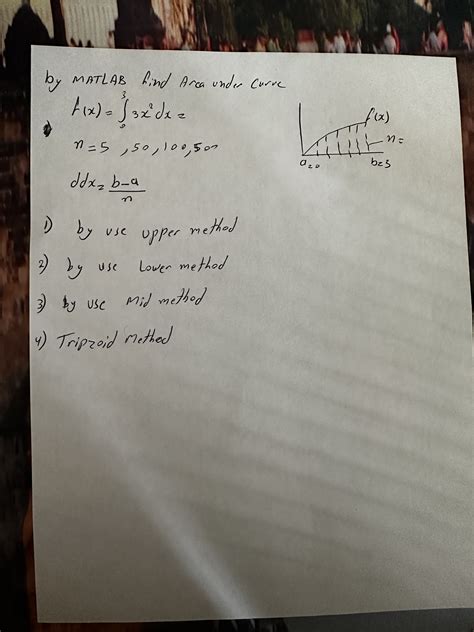 by MATLAB find Area under curve
f(x) = ∫₀³ 3x² dx =
n = 5 , 50 , 100, 500
ddx = (b-a)/n
1) by use upper method
2) by use Lower method
3) by use Mid method
4) Tripzoid Method
f(x)
n=
a=0 b=3